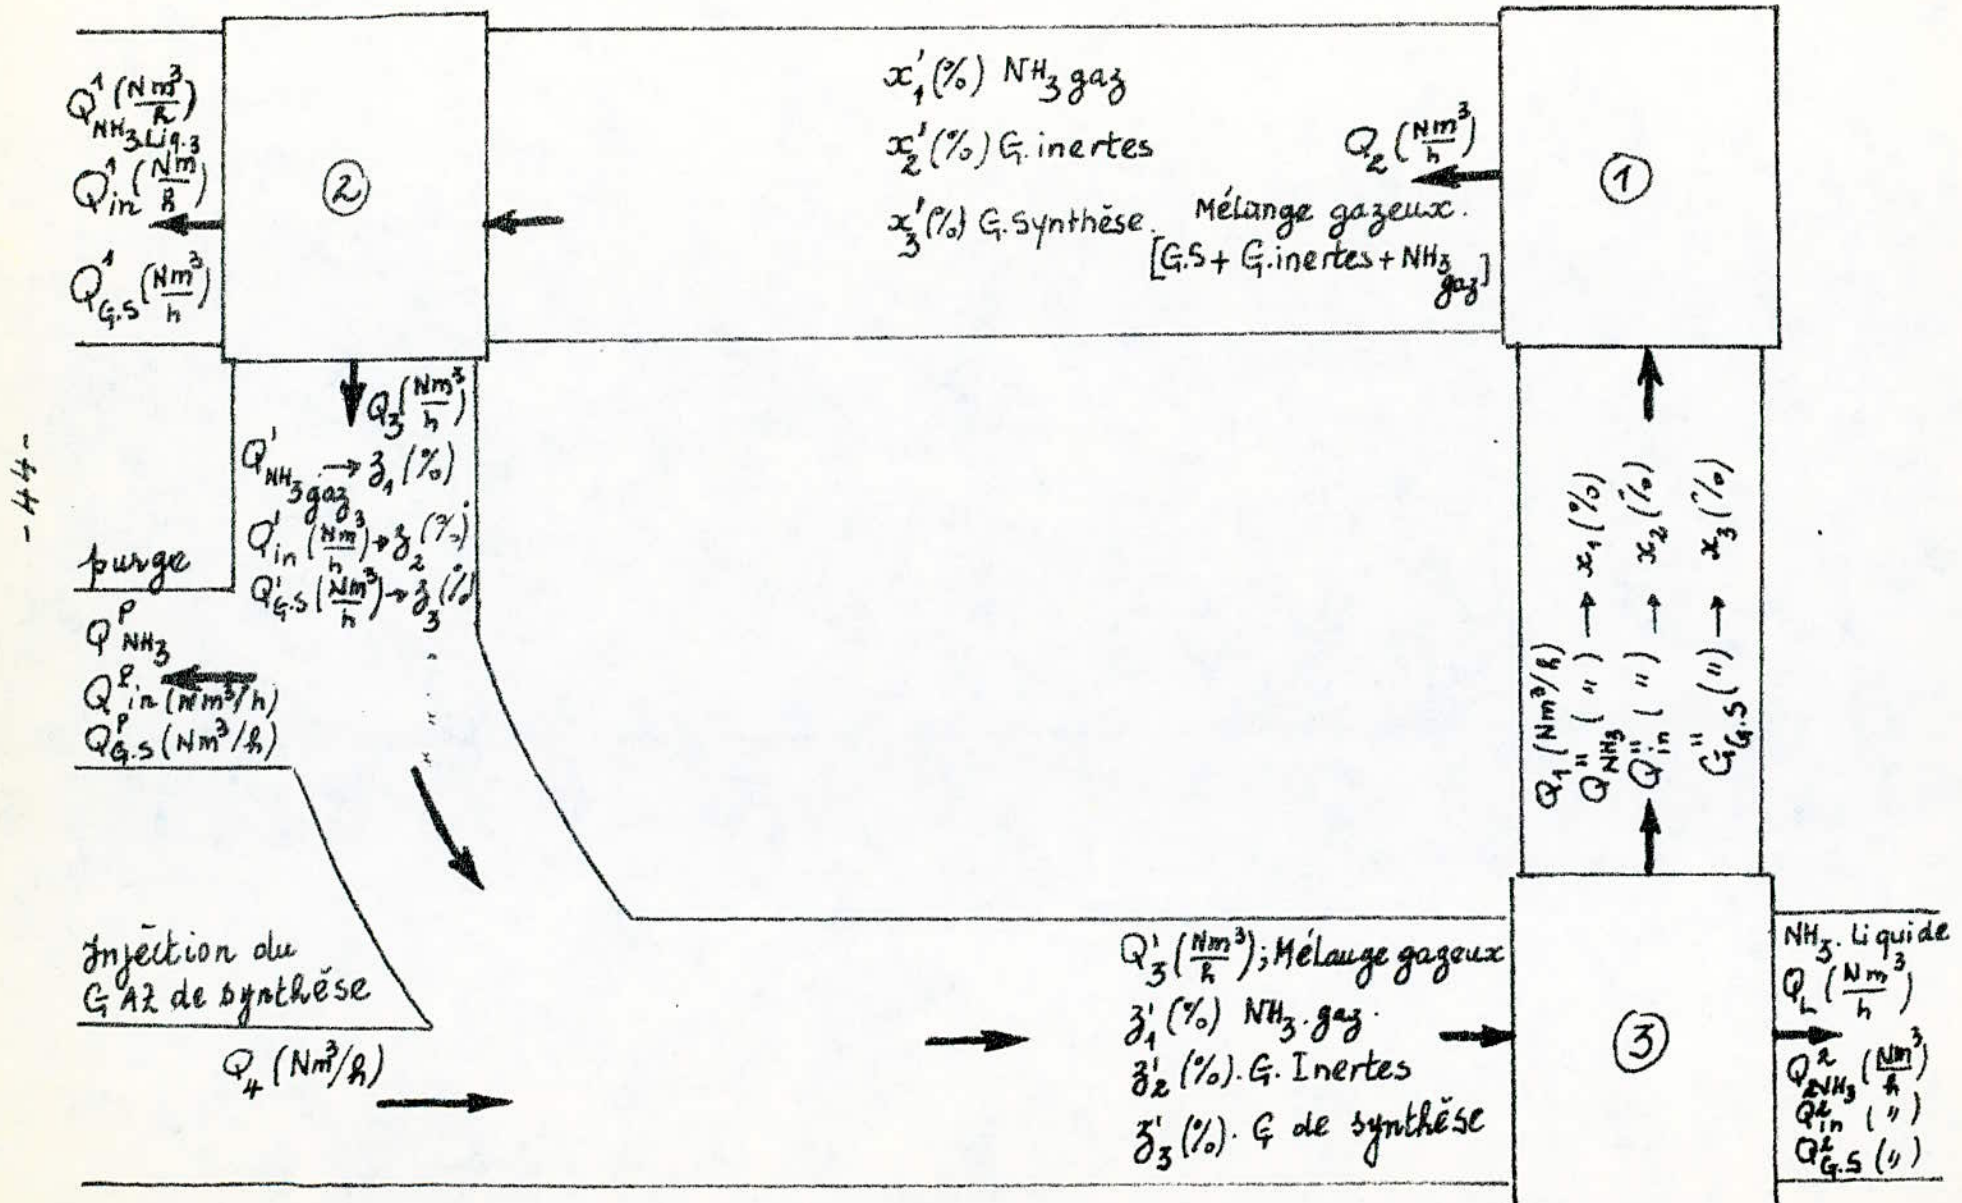 -44-
Q¹ (Nm³/h)
NH₃ Liq.
Q¹in (Nm³/h)
Q¹G.S (Nm³/h)
②
x'₁ (%) NH₃ gaz
x'₂ (%) G. inertes
x'₃ (%) G. Synthèse.
Q₂ (Nm³/h)
Mélange gazeux.
[G.S + G. inertes + NH₃ gaz]
①
Q₃ (Nm³/h)
Q'NH₃ gaz → z₁ (%)
Q'in (Nm³/h) → z₂ (%)
Q'G.S (Nm³/h) → z₃ (%)
purge
QᵖNH₃
Qᵖin (Nm³/h)
QᵖG.S (Nm³/h)
Q₁ (Nm³/h)
Q"NH₃ (") → x₁ (%)
Q"in (") → x₂ (%)
G"G.S (") → x₃ (%)
Injection du
GAZ de synthèse
Q₄ (Nm³/h)
Q'₃ (Nm³/h); Mélange gazeux
z'₁ (%) NH₃. gaz.
z'₂ (%). G. Inertes
z'₃ (%). G de synthèse
③
NH₃. Liquide
QL (Nm³/h)
Q²2NH₃ (Nm³/h)
Q²in (")
Q²G.S (")